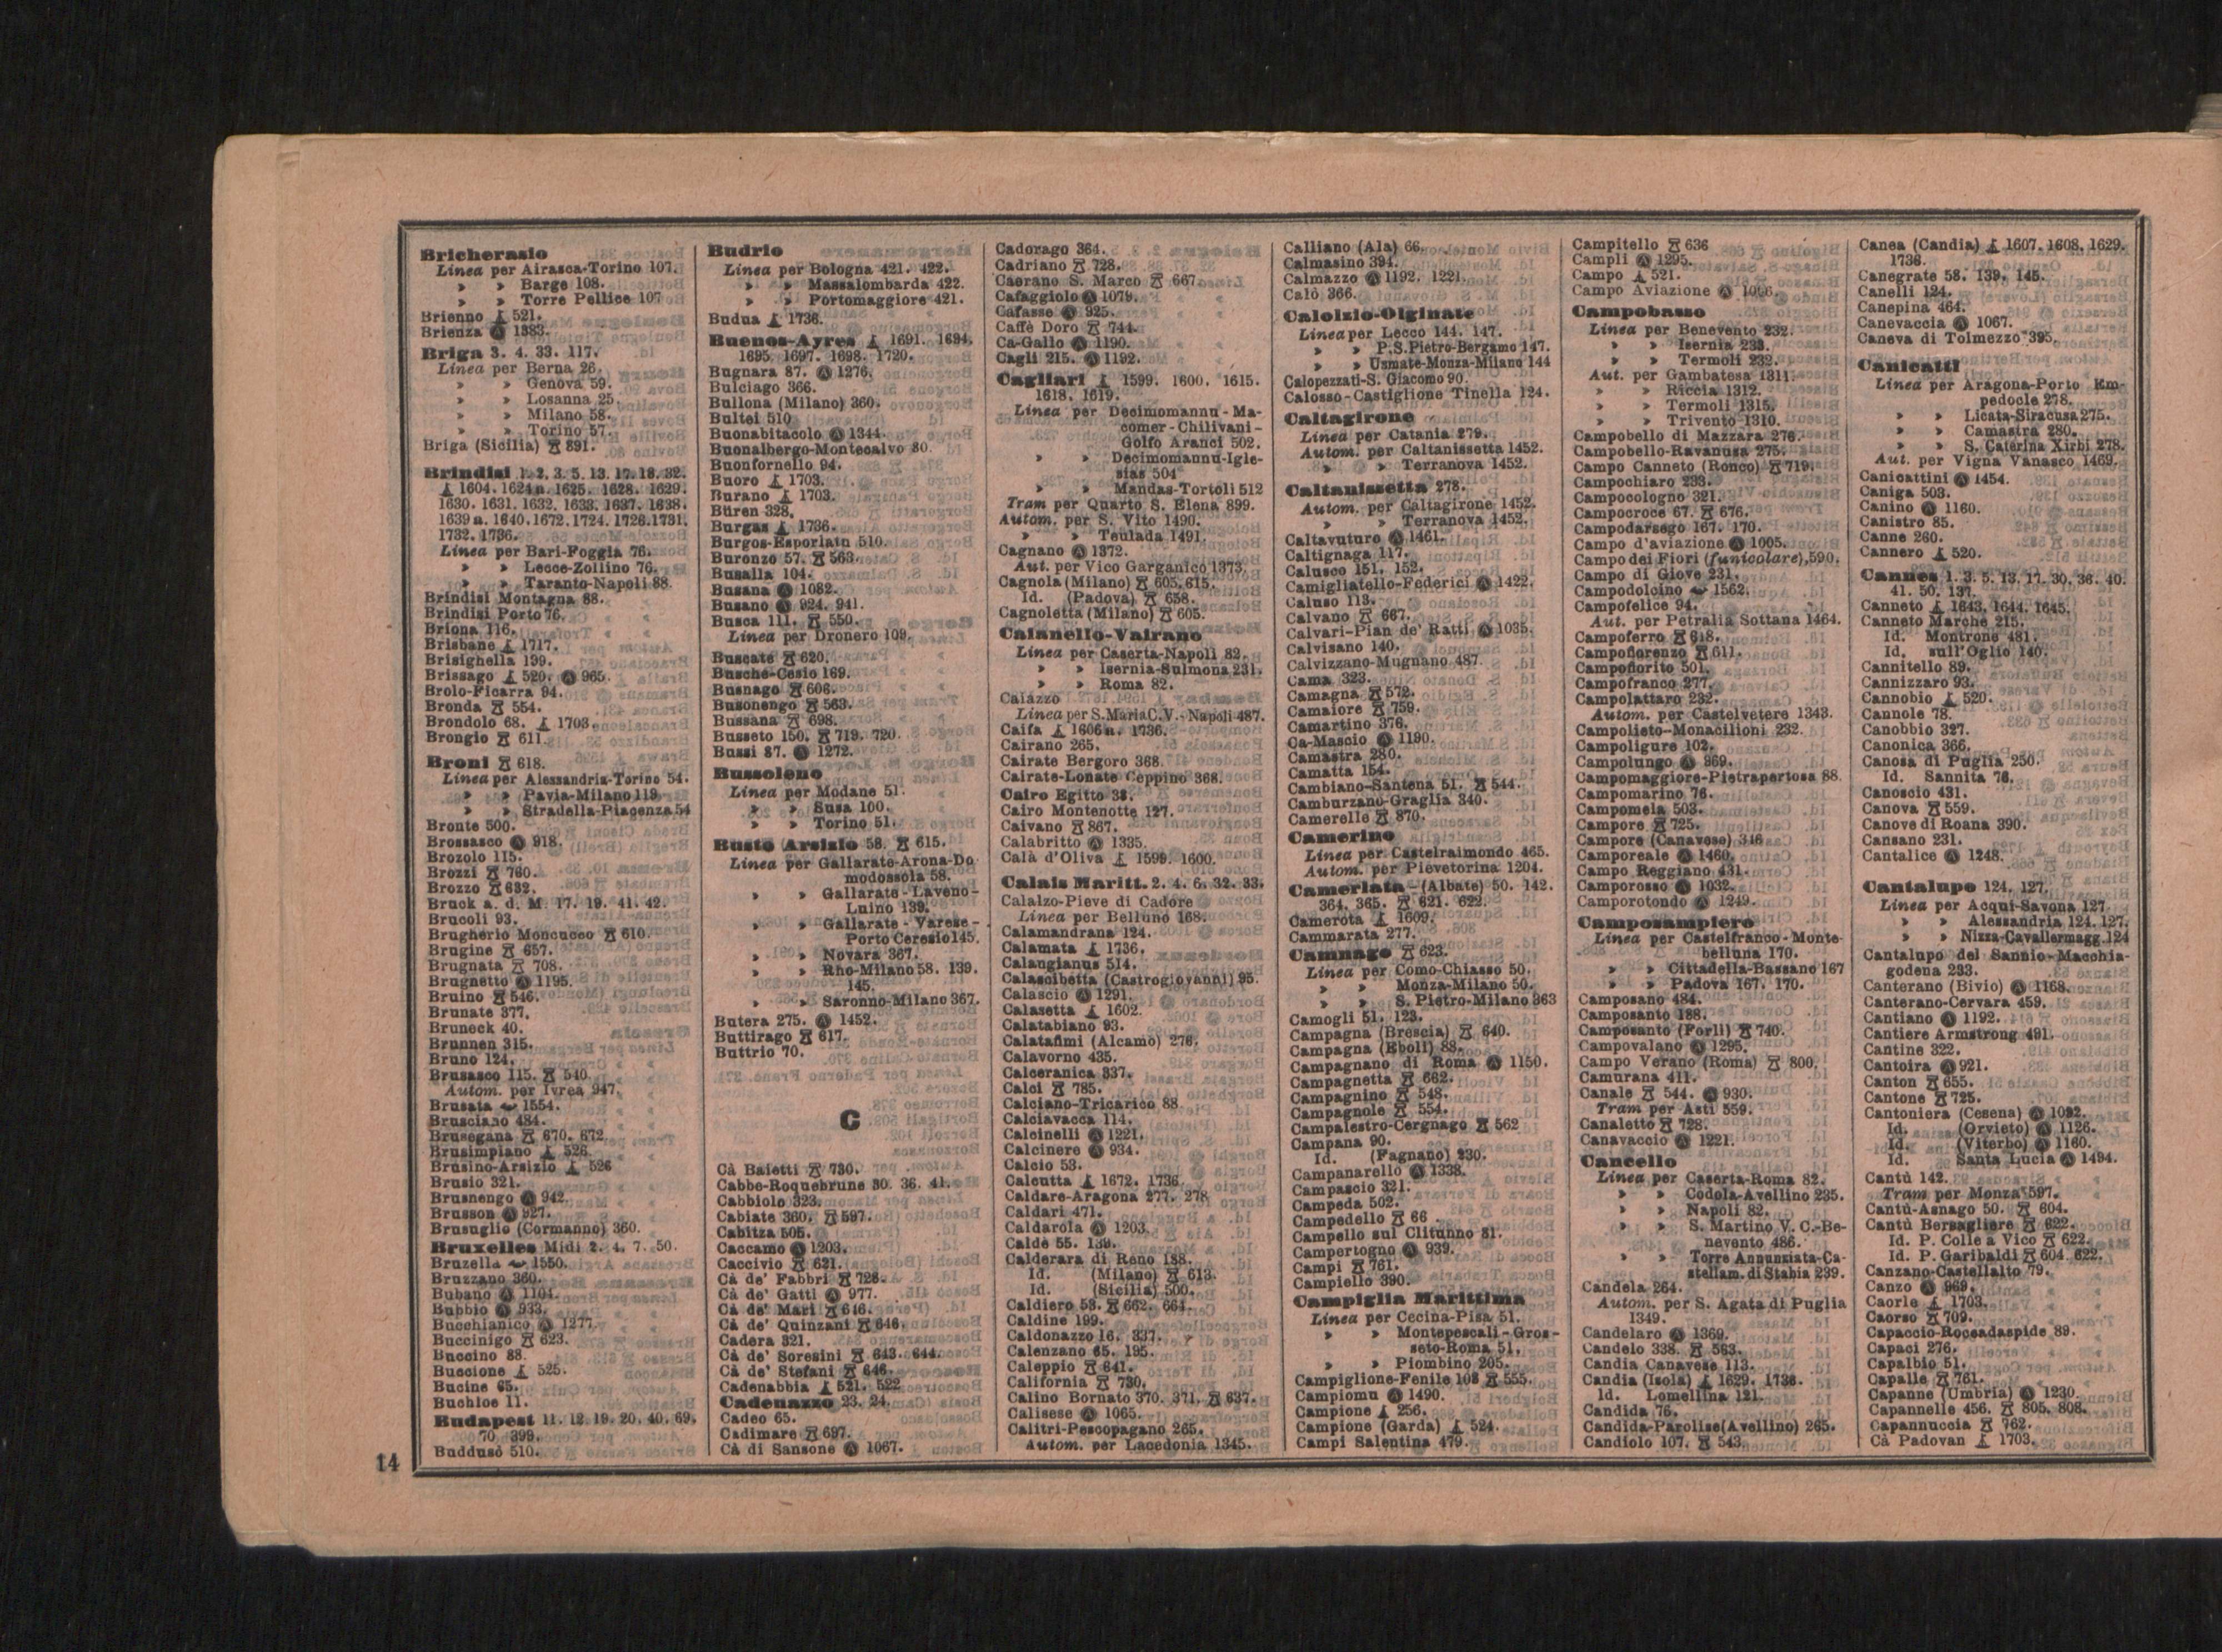 Bricherasio
Linea per Airasca-Torino 107.
» » Barge 108.
» » Torre Pellice 107
Brienno 521.
Brienza 1383.
Briga 3. 4. 33. 117.
Linea per Berna 26.
» » Genova 59.
» » Losanna 25.
» » Milano 58.
» » Torino 57.
Briga (Sicilia) 891.
Brindisi 1. 2. 3. 5. 13. 17. 18. 32.
1604. 1624 a. 1625. 1628. 1629.
1630. 1631. 1632. 1633. 1637. 1638.
1639 a. 1640. 1672. 1724. 1726. 1731.
1732. 1736.
Linea per Bari-Foggia 76.
» » Lecce-Zollino 76.
» » Taranto-Napoli 88.
Brindisi Montagna 88.
Brindisi Porto 76.
Briona 116.
Brisbane 1717.
Brisighella 199.
Brissago 520. 965.
Brolo-Ficarra 94.
Bronda 554.
Brondolo 68. 1703.
Brongio 611.
Broni 618.
Linea per Alessandria-Torino 54.
» » Pavia-Milano 119.
» » Stradella-Piacenza 54
Bronte 500.
Brossasco 918.
Brozolo 115.
Brozzi 760.
Brozzo 632.
Bruck a. d. M. 17. 19. 41. 42.
Brucoli 93.
Brugherio Moncucco 610.
Brugine 657.
Brugnata 708.
Brugnetto 1195.
Bruino 546.
Brunate 377.
Bruneck 40.
Brunnen 315.
Bruno 124.
Brusasco 115. 540.
Autom. per Ivrea 947.
Brusata 1554.
Brusciano 484.
Brusegana 670. 672
Brusimpiano 526.
Brusino-Arsizio 526
Brusio 321.
Brusnengo 942
Brusson 927.
Brusuglio (Cormanno) 360.
Bruxelles Midi 2. 4. 7. 50.
Bruzella 1550.
Bruzzano 360.
Bubano 1104.
Bubbio 933.
Bucchianico 1277
Buccinigo 623.
Buccino 88.
Buccione 525.
Bucine 65.
Buchloe 11.
Budapest 11. 12. 19. 20. 40. 69.
70. 399.
Buddusò 510.
Budrio
Linea per Bologna 421. 422.
» » Massalombarda 422.
» » Portomaggiore 421.
Budua 1736.
Buenos-Ayres 1691. 1694.
1695. 1697. 1698. 1720.
Bugnara 87. 1276.
Bulciago 366.
Bullona (Milano) 360.
Bultei 510
Buonabitacolo 1344.
Buonalbergo-Montecalvo 80.
Buonfornello 94.
Buoro 1703.
Burano 1703.
Büren 328.
Burgas 1736.
Burgos-Esporlatu 510.
Buronzo 57. 563.
Busalla 104.
Busana 1082.
Busano 924. 941.
Busca 111. 550.
Linea per Dronero 109.
Buscate 620.
Busche-Cesio 169.
Busnago 606.
Busonengo 563.
Bussana 698.
Busseto 150. 719. 720.
Bussi 87. 1272.
Bussoleno
Linea per Modane 51.
» » Susa 100.
» » Torino 51.
Busto Arsizio 58. 615.
Linea per Gallarate-Arona-Do
modossola 58.
» » Gallarate - Laveno -
Luino 139.
» » Gallarate - Varese -
Porto Ceresio 145.
» » Novara 367.
» » Rho-Milano 58. 139.
145.
» » Saronno-Milano 367.
Butera 275. 1452.
Buttirago 617.
Buttrio 70.
C
Cà Baietti 730.
Cabbe-Roquebrune 30. 36. 41.
Cabbiolo 323.
Cabiate 360. 597.
Cabitza 505.
Caccamo 1203.
Caccivio 621.
Cà de' Fabbri 728.
Cà de' Gatti 977.
Cà de' Mari 646.
Cà de' Quinzani 646.
Cadera 321.
Cà de' Soresini 643. 644.
Cà de' Stefani 646.
Cadenabbia 521. 522
Cadenazzo 23. 24.
Cadeo 65.
Cadimare 697.
Cà di Sansone 1067.
Cadorago 364.
Cadriano 728.
Caerano S. Marco 667.
Cafaggiolo 1079.
Cafasse 925.
Caffè Doro 744.
Ca-Gallo 1190.
Cagli 215. 1192.
Cagliari 1599. 1600. 1615.
1618. 1619.
Linea per Decimomannu - Ma-
comer - Chilivani -
Golfo Aranci 502.
» » Decimomannu-Igle-
sias 504
» » Mandas-Tortoli 512
Tram per Quarto S. Elena 899.
Autom. per S. Vito 1490.
» » Teulada 1491.
Cagnano 1372.
Aut. per Vico Garganico 1373.
Cagnola (Milano) 605. 615.
Id. (Padova) 658.
Cagnoletta (Milano) 605.
Caianello-Vairano
Linea per Caserta-Napoli 82.
» » Isernia-Sulmona 231.
» » Roma 82.
Caiazzo
Linea per S. Maria C. V. - Napoli 487.
Caifa 1606 a. 1736.
Cairano 265.
Cairate Bergoro 368.
Cairate-Lonate Ceppino 368.
Cairo Egitto 38.
Cairo Montenotte 127.
Caivano 867.
Calabritto 1335.
Calà d'Oliva 1599. 1600.
Calais Maritt. 2. 4. 6. 32. 33.
Calalzo-Pieve di Cadore
Linea per Belluno 168.
Calamandrana 124.
Calamata 1736.
Calangianus 514.
Calascibetta (Castrogiovanni) 95.
Calascio 1291.
Calasetta 1602.
Calatabiano 93.
Calatafimi (Alcamo) 276.
Calavorno 435.
Calceranica 337.
Calci 785.
Calciano-Tricarico 88
Calciavacca 114.
Calcinelli 1221.
Calcinere 934.
Calcio 53.
Calcutta 1672. 1736
Caldare-Aragona 277. 278
Caldari 471.
Caldarola 1203.
Caldè 55. 139.
Calderara di Reno 188.
Id. (Milano) 613.
Id. (Sicilia) 500.
Caldiero 53. 662. 664.
Caldine 199.
Caldonazzo 16. 337.
Calenzano 65. 195.
Caleppio 641.
California 730.
Calino Bornato 370. 371. 637.
Calisese 1065.
Calitri-Pescopagano 265.
Autom. per Lacedonia 1345.
Calliano (Ala) 66.
Calmasino 394.
Calmazzo 1192. 1221.
Calò 366.
Calolzio-Olginate
Linea per Lecco 144. 147.
» » P.S. Pietro-Bergamo 147.
» » Usmate-Monza-Milano 144
Calopezzati-S. Giacomo 90.
Calosso-Castiglione Tinella 124.
Caltagirone
Linea per Catania 279.
Autom. per Caltanissetta 1452.
» » Terranova 1452.
Caltanissetta 278.
Autom. per Caltagirone 1452.
» » Terranova 1452.
Caltavuturo 1461.
Caltignaga 117.
Calusco 151. 152.
Camigliatello-Federici 1422.
Caluso 113.
Calvano 667.
Calvari-Pian de' Ratti 1035.
Calvisano 140.
Calvizzano-Mugnano 487
Cama 323.
Camagna 572.
Camaiore 759.
Camartino 376.
Ca-Mascio 1190.
Camastra 280.
Camatta 154.
Cambiano-Santena 51. 544.
Camburzano-Graglia 340.
Camerelle 870.
Camerino
Linea per Castelraimondo 465.
Autom. per Pievetorina 1204.
Camerlata - (Albate) 50. 142.
364. 365. 621. 622.
Camerota 1609.
Cammarata 277.
Camnago 623.
Linea per Como-Chiasso 50.
» » Monza-Milano 50.
» » S. Pietro-Milano 363
Camogli 51. 123.
Campagna (Brescia) 640.
Campagna (Eboli) 88.
Campagnano di Roma 1150.
Campagnetta 662.
Campagnino 548.
Campagnole 554.
Campalestro-Cergnago 562
Campana 90.
Id. (Fagnano) 230.
Campanarello 1338.
Campascio 321.
Campeda 502.
Campedello 66
Campello sul Clitunno 81.
Campertogno 939.
Campi 761.
Campiello 390.
Campiglia Marittima
Linea per Cecina-Pisa 51.
» » Montepescali - Gros-
seto-Roma 51.
» » Piombino 205.
Campiglione-Fenile 108 555.
Campiomu 1490.
Campione 256.
Campione (Garda) 524.
Campi Salentina 479.
Campitello 636
Campli 1295.
Campo 521.
Campo Aviazione 1006.
Campobasso
Linea per Benevento 232.
» » Isernia 233.
» » Termoli 232.
Aut. per Gambatesa 1311.
» » Riccia 1312.
» » Termoli 1315.
» » Trivento 1310.
Campobello di Mazzara 276.
Campobello-Ravanusa 275.
Campo Canneto (Ronco) 719.
Campochiaro 233.
Campocologno 321.
Campocroce 67. 676.
Campodarsego 167. 170.
Campo d'aviazione 1005.
Campo dei Fiori (funicolare), 590.
Campo di Giove 231.
Campodolcino 1562.
Campofelice 94.
Aut. per Petralia Sottana 1464.
Campoferro 618.
Campofiorenzo 611.
Campofiorito 501.
Campofranco 277.
Campolattaro 232.
Autom. per Castelvetere 1343.
Campolieto-Monacilioni 232.
Campoligure 102.
Campolungo 969.
Campomaggiore-Pietrapertosa 88
Campomarino 76.
Campomela 503.
Campore 725.
Campore (Canavese) 346
Camporeale 1460.
Campo Reggiano 431.
Camporosso 1032.
Camporotondo 1249.
Camposampiero
Linea per Castelfranco - Monte-
belluna 170.
» » Cittadella-Bassano 167
» » Padova 167. 170.
Camposano 484.
Camposanto 188.
Camposanto (Forlì) 740.
Campovalano 1295.
Campo Verano (Roma) 800.
Camurana 411.
Canale 544. 930.
Tram per Asti 559.
Canaletto 728.
Canavaccio 1221.
Cancello
Linea per Caserta-Roma 82.
» » Codola-Avellino 235.
» » Napoli 82.
» » S. Martino V. C.-Be-
nevento 486.
» » Torre Annunziata-Ca-
stellam. di Stabia 239.
Candela 264.
Autom. per S. Agata di Puglia
1349.
Candelaro 1369.
Candelo 338. 563.
Candia Canavese 113.
Candia (Isola) 1629. 1736.
Id. Lomellina 121.
Candida 76.
Candida-Parolise (Avellino) 265.
Candiolo 107. 543.
Canea (Candia) 1607. 1608. 1629.
1736.
Canegrate 58. 139. 145.
Canelli 124.
Canepina 464.
Canevaccia 1067.
Caneva di Tolmezzo 395.
Canicattì
Linea per Aragona-Porto Em-
pedocle 278.
» » Licata-Siracusa 275.
» » Camastra 280.
» » S. Caterina Xirbi 278.
Aut. per Vigna Vanasco 1469.
Canicattini 1454.
Caniga 503.
Canino 1160.
Canistro 85.
Canne 260.
Cannero 520.
Cannes 1. 3. 5. 13. 17. 30. 36. 40.
41. 50. 137.
Canneto 1643. 1644. 1645.
Canneto Marche 215.
Id. Montrone 481.
Id. sull'Oglio 140.
Cannitello 89.
Cannizzaro 93.
Cannobio 520.
Cannole 78.
Canobbio 327.
Canonica 366.
Canosa di Puglia 250.
Id. Sannita 76.
Canoscio 431.
Canova 559.
Canove di Roana 390.
Cansano 231.
Cantalice 1248.
Cantalupo 124. 127.
Linea per Acqui-Savona 127
» » Alessandria 124. 127.
» » Nizza-Cavallermagg. 124
Cantalupo del Sannio-Macchia-
godena 233.
Canterano (Bivio) 1168.
Canterano-Cervara 459.
Cantiano 1192.
Cantiere Armstrong 491.
Cantine 322.
Cantoira 921.
Canton 655.
Cantone 725.
Cantoniera (Cesena) 1092.
Id. (Orvieto) 1126.
Id. (Viterbo) 1160.
Id. Santa Lucia 1494.
Cantù 142.
Tram per Monza 597.
Cantù-Asnago 50. 604.
Cantù Bersagliere 622.
Id. P. Colle a Vico 622.
Id. P. Garibaldi 604. 622.
Canzano-Castellalto 79.
Canzo 969.
Caorle 1703.
Caorso 709.
Capaccio-Roccadaspide 89.
Capaci 276.
Capalbio 51.
Capalle 761.
Capanne (Umbria) 1230.
Capannelle 456. 805. 808.
Capannuccia 762.
Cà Padovan 1703.
14